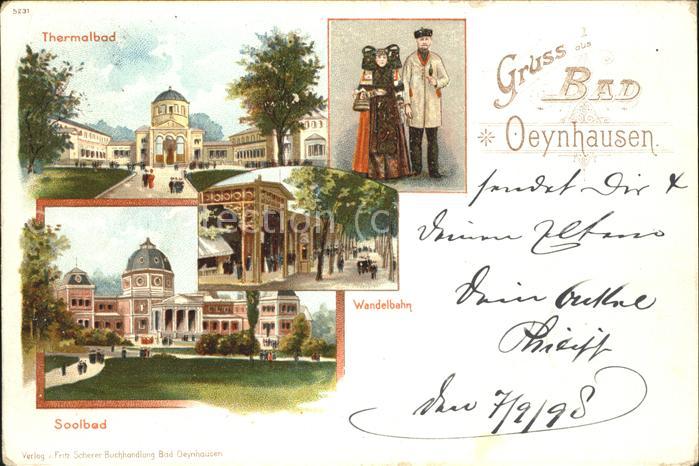 5231
Thermalbad
Gruss aus
BAD
Oeynhausen.
sendet Dir &
Deinen Eltern
Dein Onkel
den 7/9/98
Wandelbahn
Soolbad
Verlag v. Fritz Scherer Buchhandlung Bad Oeynhausen